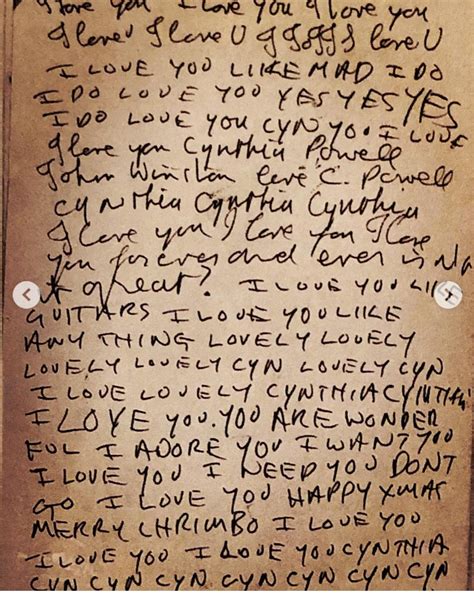 I love you I love you I love you
I love U I love U I love U
I LOVE YOU LIKE MAD I DO
I DO LOVE YOU YES YES YES
I DO LOVE YOU CYN YOU I LOVE
I love you Cynthia Powell
John Winston love C. Powell
CYNthia Cynthia Cynthia
I love you I love you I love
you forever and ever isn't
it great? I LOVE YOU LIKE
GUITARS I LOVE YOU LIKE
ANY THING LOVELY LOVELY
LOVELY LOVELY CYN LOVELY CYN
I LOVE LOVELY CYNTHIA CYNTHIA
I LOVE YOU. YOU ARE WONDER
FUL I ADORE YOU I WANT YOU
I LOVE YOU I NEED YOU DONT
GO I LOVE YOU HAPPY XMAS
MERRY CHRIMBO I LOVE YOU
I LOVE YOU I LOVE YOU CYNTHIA
CYN CYN CYN CYN CYN CYN CYN